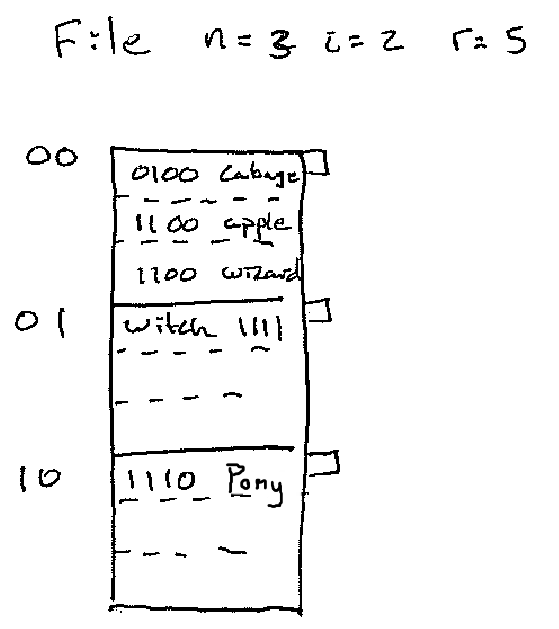 File n = 3 i = 2 r = 5
00
0100 Cabage
1100 apple
1100 wizard
01
witch 1111
10
1110 Pony